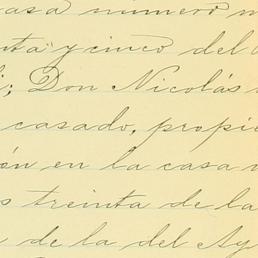 casa número
nta y cinco del
; Don Nicolás
casado, propie
ón en la casa
s treinta de la
de la del Ay